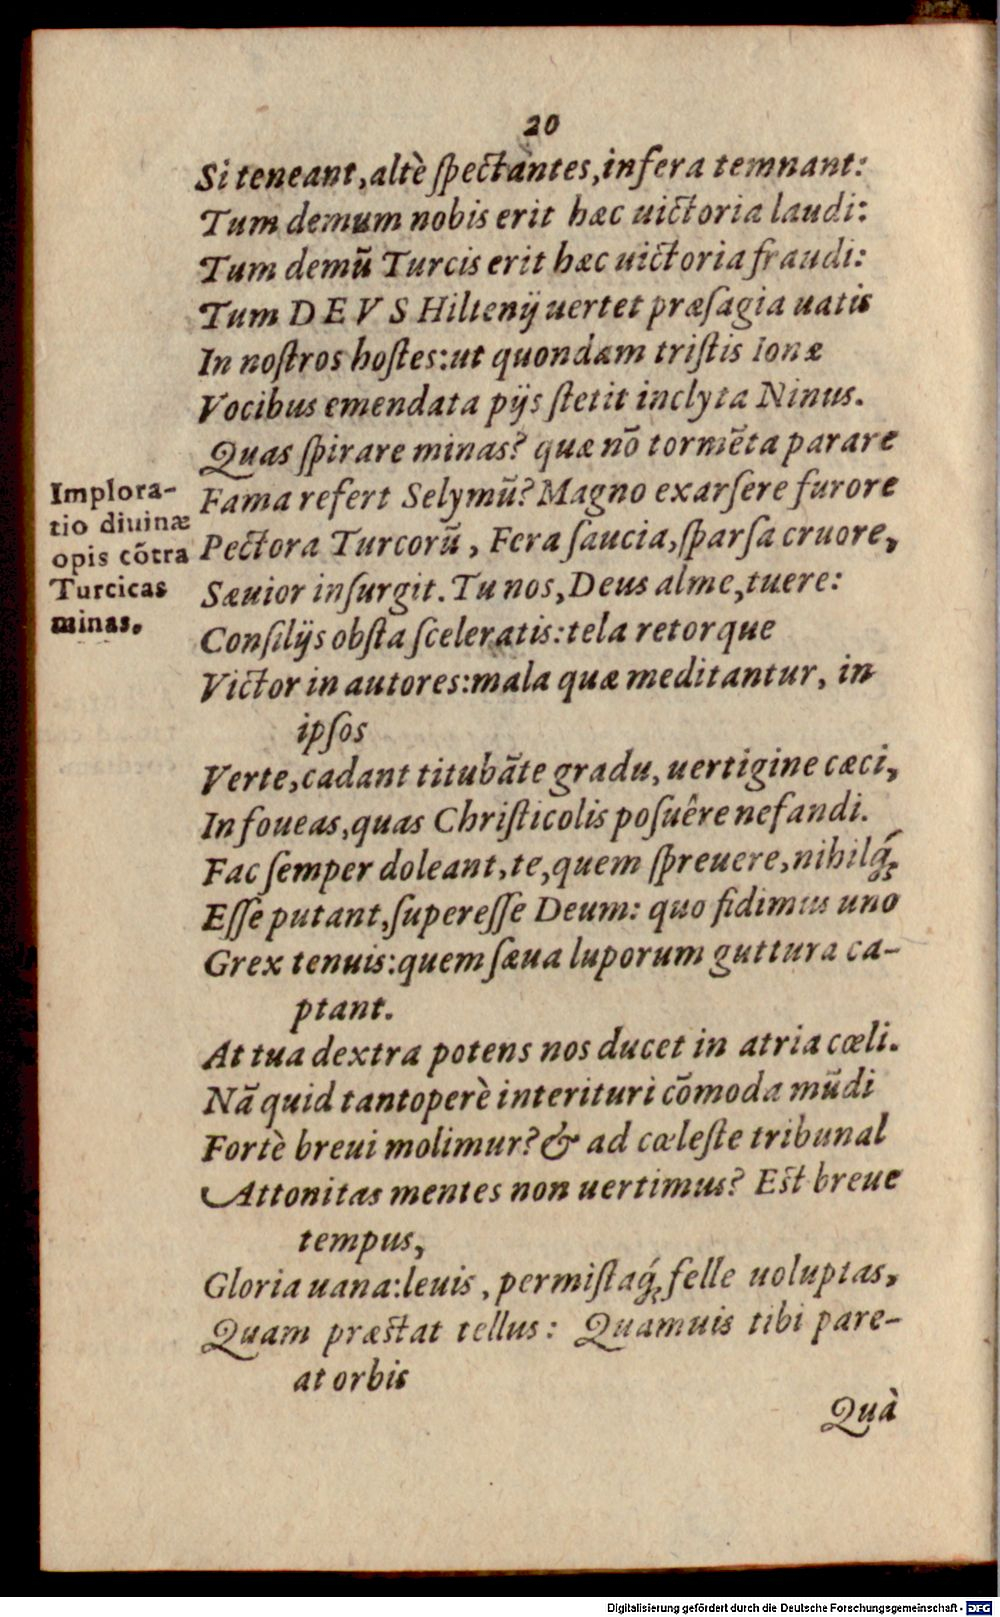 20
Si teneant, altè ſpectantes, infera temnant:
Tum demum nobis erit hæc uictoria laudi:
Tum demũ Turcis erit hæc uictoria fraudi:
Tum DEVS Hiltenij uertet præſagia uatis
In noſtros hoſtes: ut quondam triſtis Ionæ
Vocibus emendata pijs ſtetit inclyta Ninus.
Quas ſpirare minas? quæ nõ tormẽta parare
Implora-
tio diuinæ
opis cõtra
Turcicas
minas.
Fama refert Selymũ? Magno exarſere furore
Pectora Turcorũ, Fera ſaucia, ſparſa cruore,
Sæuior inſurgit. Tu nos, Deus alme, tuere:
Conſilijs obſta ſceleratis: tela retorque
Victor in autores: mala quæ meditantur, in
ipſos
Verte, cadant titubãte gradu, uertigine cæci,
In foueas, quas Chriſticolis poſuêre nefandi.
Fac ſemper doleant, te, quem ſpreuere, nihilq́;
Eſſe putant, ſupereſſe Deum: quo fidimus uno
Grex tenuis: quem ſæua luporum guttura ca-
ptant.
At tua dextra potens nos ducet in atria cœli.
Nã quid tantoperè interituri cõmoda mũdi
Fortè breui molimur? & ad cœleſte tribunal
Attonitas mentes non uertimus? Eſt breue
tempus,
Gloria uana: leuis, permiſtaq́; felle uoluptas,
Quam præſtat tellus: Quamuis tibi pare-
at orbis
Quà
Digitalisierung gefördert durch die Deutsche Forschungsgemeinschaft - DFG